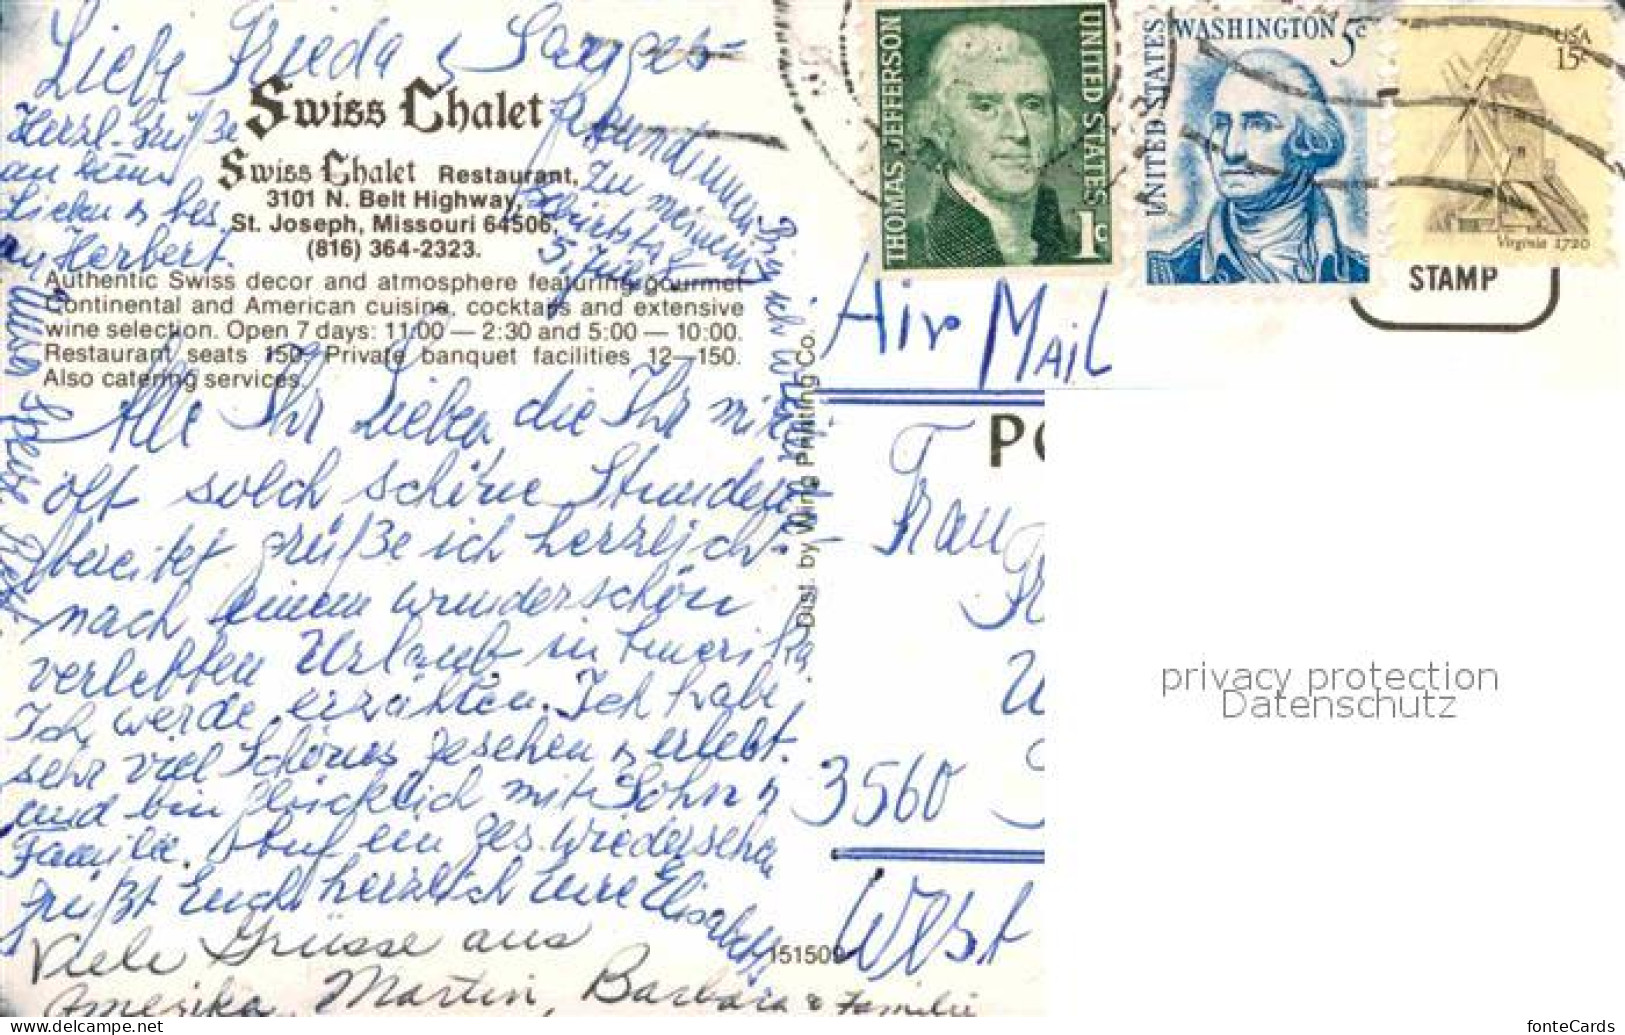 Liebe Frieda
Herzl. Grüße
an
Lieben
Herbert.
Swiss Chalet
Swiss Chalet Restaurant,
3101 N. Belt Highway,
St. Joseph, Missouri 64506,
(816) 364-2323.
Authentic Swiss decor and atmosphere featuring gourmet
Continental and American cuisine, cocktails and extensive
wine selection. Open 7 days: 11:00 — 2:30 and 5:00 — 10:00.
Restaurant seats 150. Private banquet facilities 12—150.
Also catering services.
zu meinem
5. Juli
Alle Ihr Lieben, die Ihr mir
oft solch schöne Stunden
bereitet grüße ich herzlich.
nach einem wunderschön
verlebten Urlaub in Amerika
Ich werde erzählen. Ich habe
sehr viel Schönes gesehen u erlebt.
und bin glücklich mit Sohn u
Familie. Auf ein ges. Wiedersehen
grüßt Euch herzlich Eure Elisabeth
Viele Grüsse aus
Amerika, Martin, Barbara & Familie
151509
Dist. by Wing Printing Co.
THOMAS JEFFERSON
UNITED STATES
1c
UNITED STATES
WASHINGTON 5c
USA
15c
Virginia 1720
STAMP
Air Mail
PO
Frau
3560
West
privacy protection
Datenschutz
fonteCards
delcampe.net